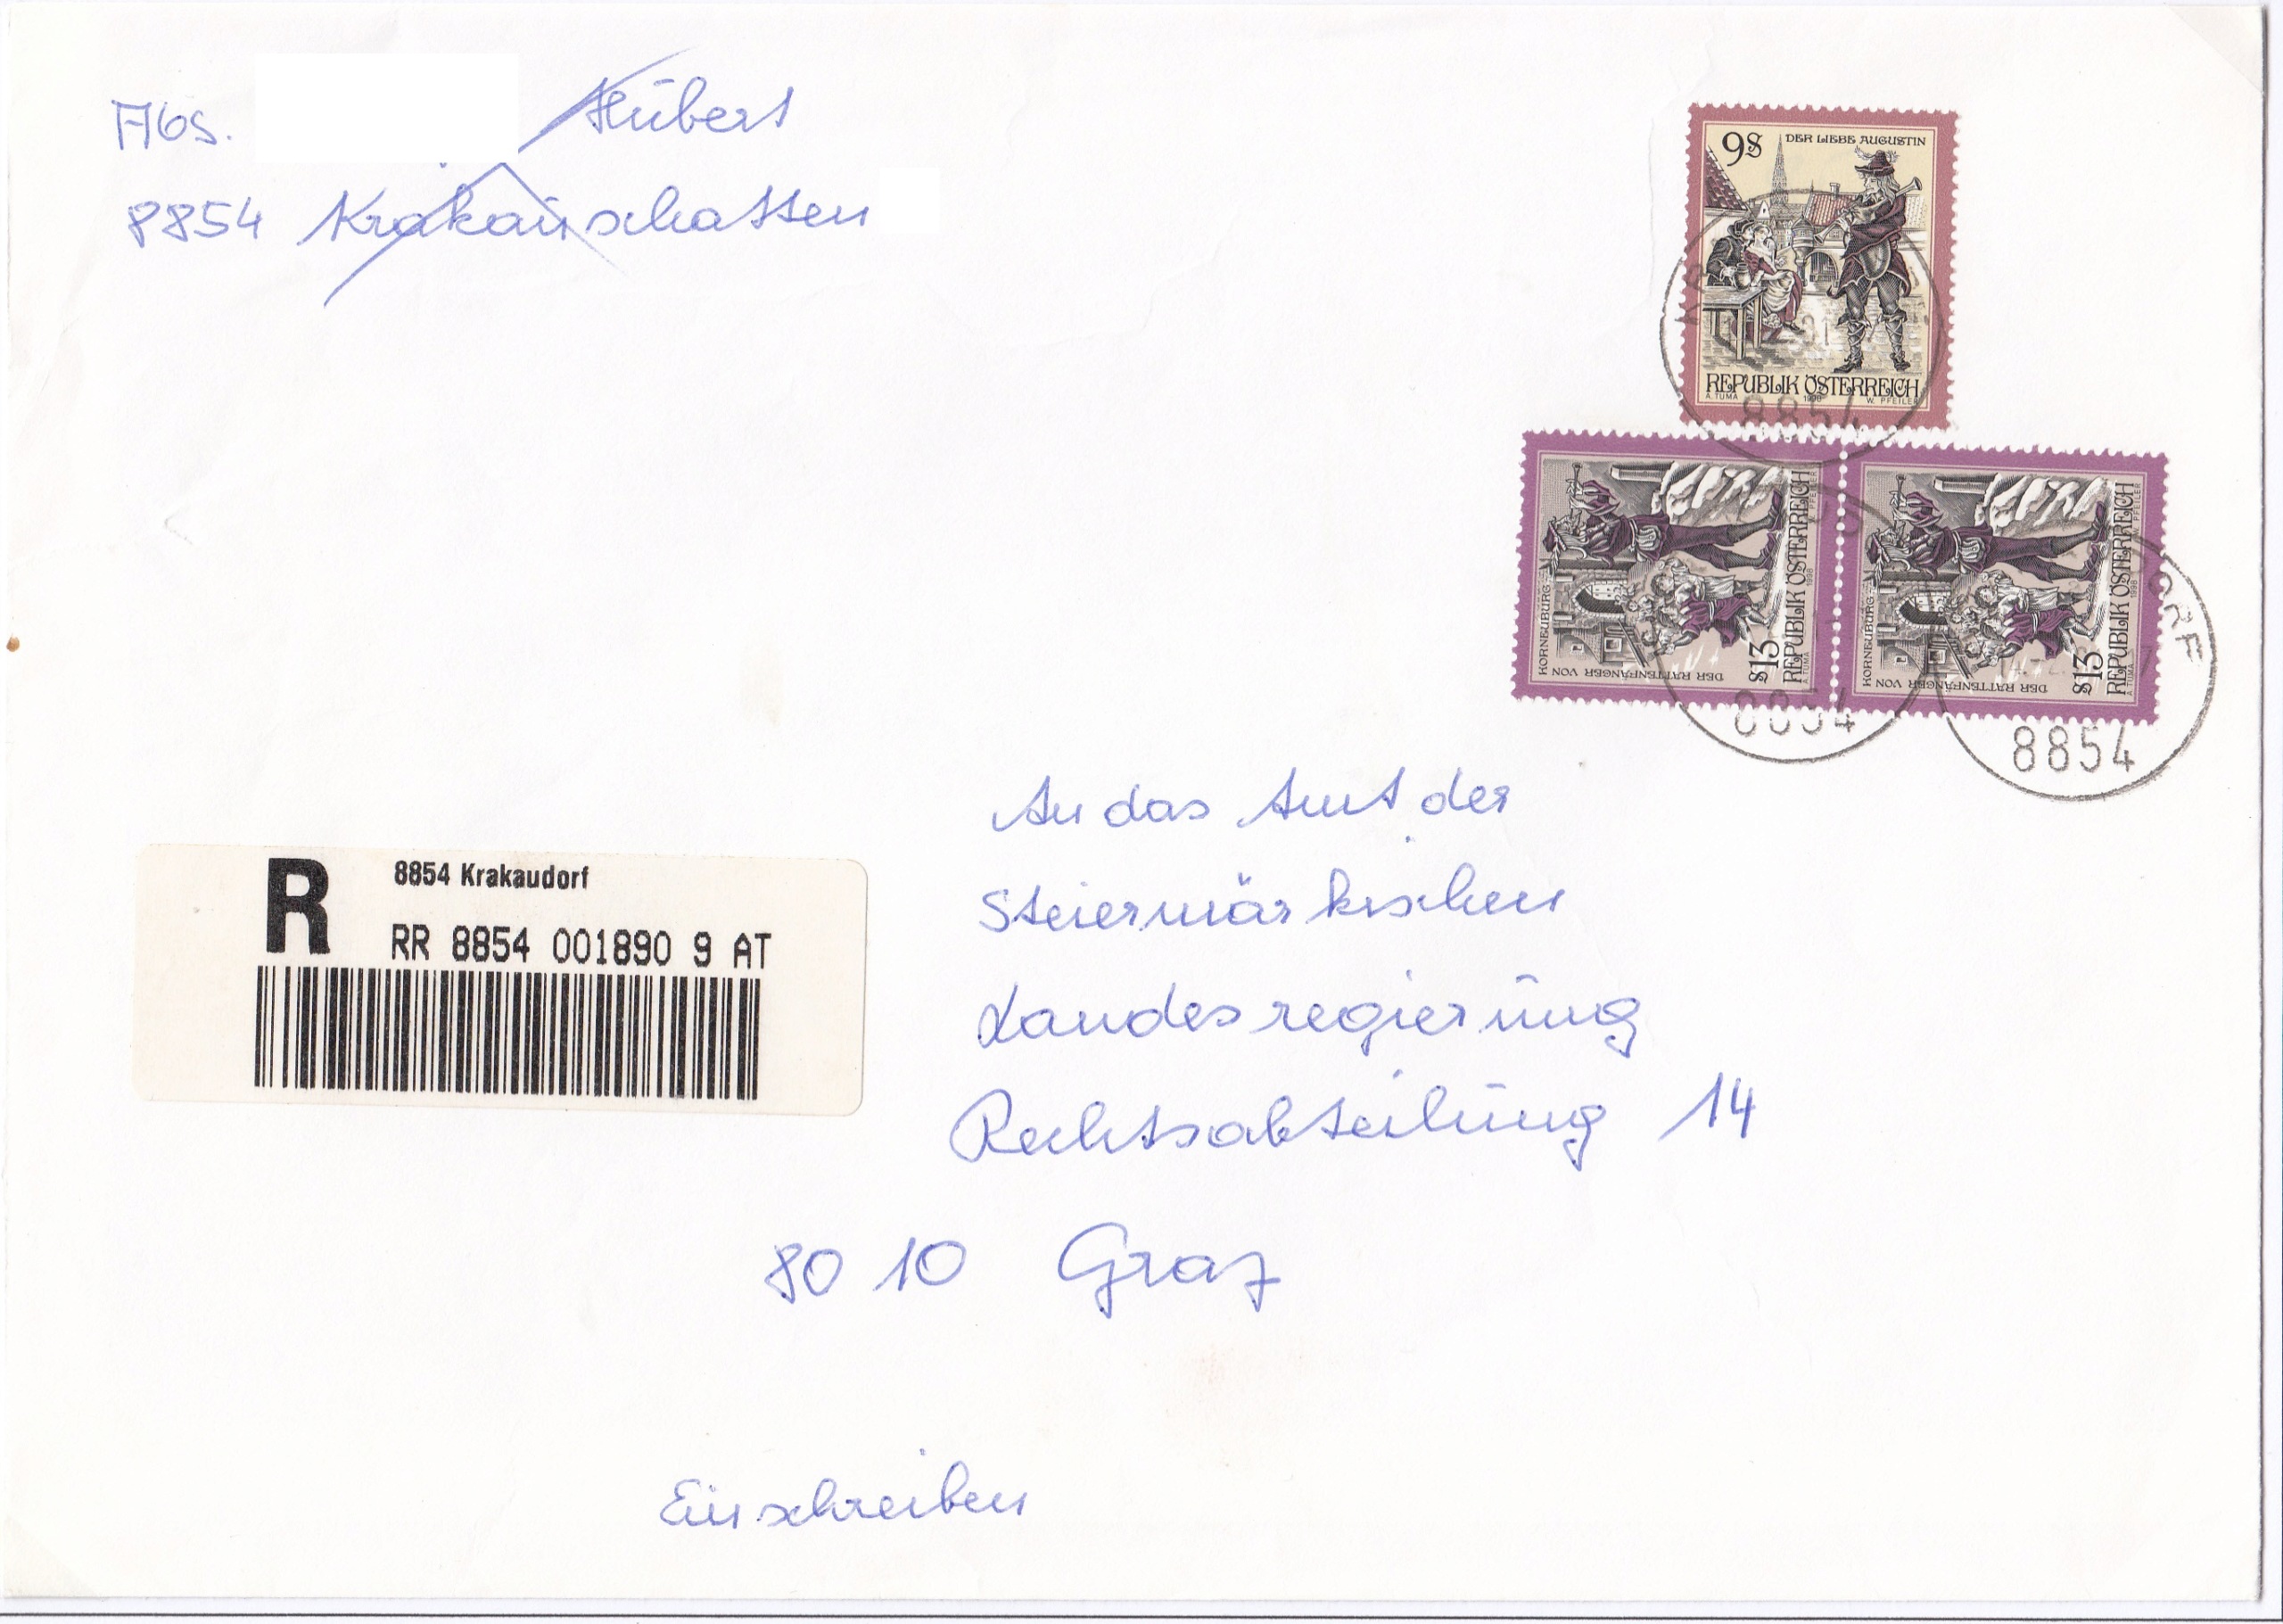 Abs. Hubert
8854 Krakauschatten
9S DER LIEBE AUGUSTIN
REPUBLIK ÖSTERREICH
A. TUMA 1998 W. PFEILER
8854
DER RATTENFÄNGER VON KORNEUBURG
S13
REPUBLIK ÖSTERREICH
A. TUMA 1998 W. PFEILER
8854
DER RATTENFÄNGER VON KORNEUBURG
S13
REPUBLIK ÖSTERREICH
A. TUMA 1998 W. PFEILER
8854
An das Amt der
Steiermärkischen
Landesregierung
Rechtsabteilung 14
8010 Graz
R 8854 Krakaudorf
RR 8854 001890 9 AT
Einschreiben